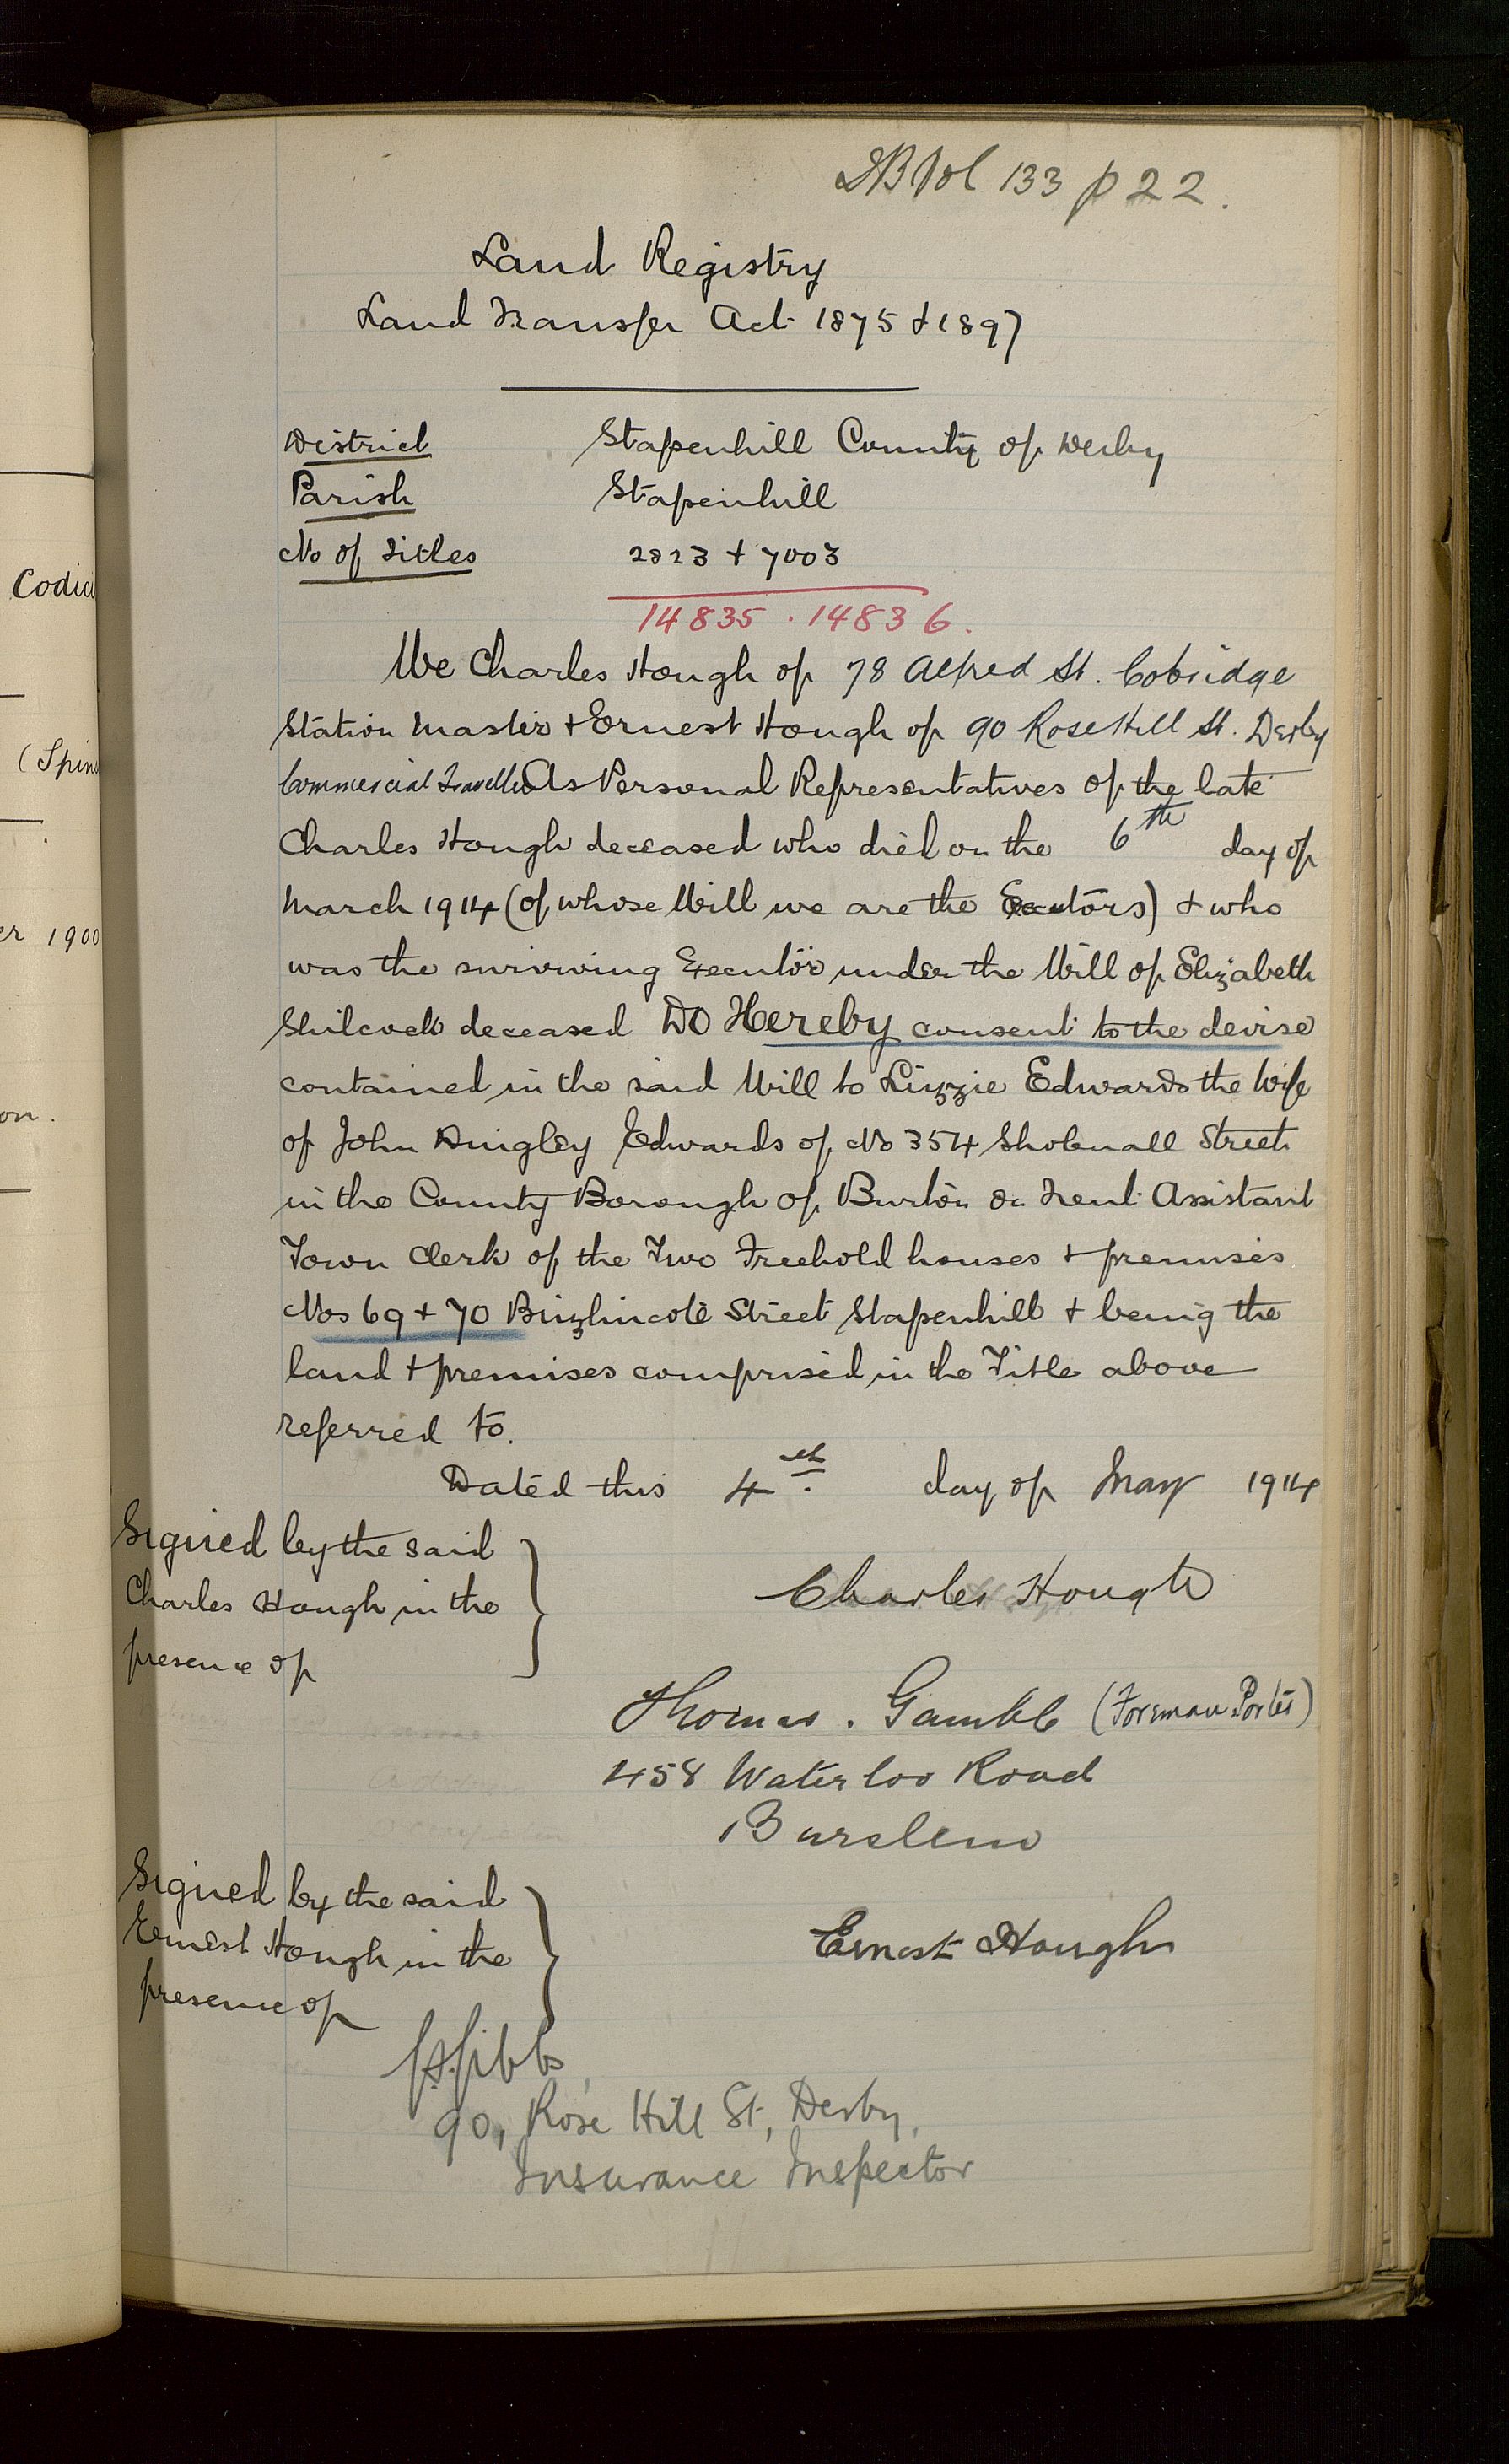 DB Vol 133 p 22.
Land Registry
Land Transfer Act 1875 & 1897
District Stapenhill County of Derby
Parish Stapenhill
No of Titles 2823 + 7003
14835 . 14836.
We Charles Hough of 78 Alfred St. Cobridge
Station Master & Ernest Hough of 90 Rose Hill St. Derby
Commercial Traveller As Personal Representatives of the late
Charles Hough deceased who died on the 6th day of
March 1914 (of whose Will we are the Executors) & who
was the surviving Executor under the Will of Elizabeth
Shilcock deceased Do Hereby consent to the devise
contained in the said Will to Lizzie Edwards the Wife
of John Dingley Edwards of No 354 Shobnall Street
in the County Borough of Burton on Trent Assistant
Town Clerk of the Two Freehold houses & premises
Nos 69 + 70 Brizlincote Street Stapenhill & being the
land & premises comprised in the Title above
referred to.
Dated this 4th day of May 1914
Signed by the said
Charles Hough in the
presence of
Charles Hough
Thomas. Gamble (Foreman Porter)
458 Waterloo Road
Burslem
Signed by the said
Ernest Hough in the
presence of
Ernest Hough
Gibbs
90, Rose Hill St, Derby,
Insurance Inspector
Codici
(Spins
er 1900
on.